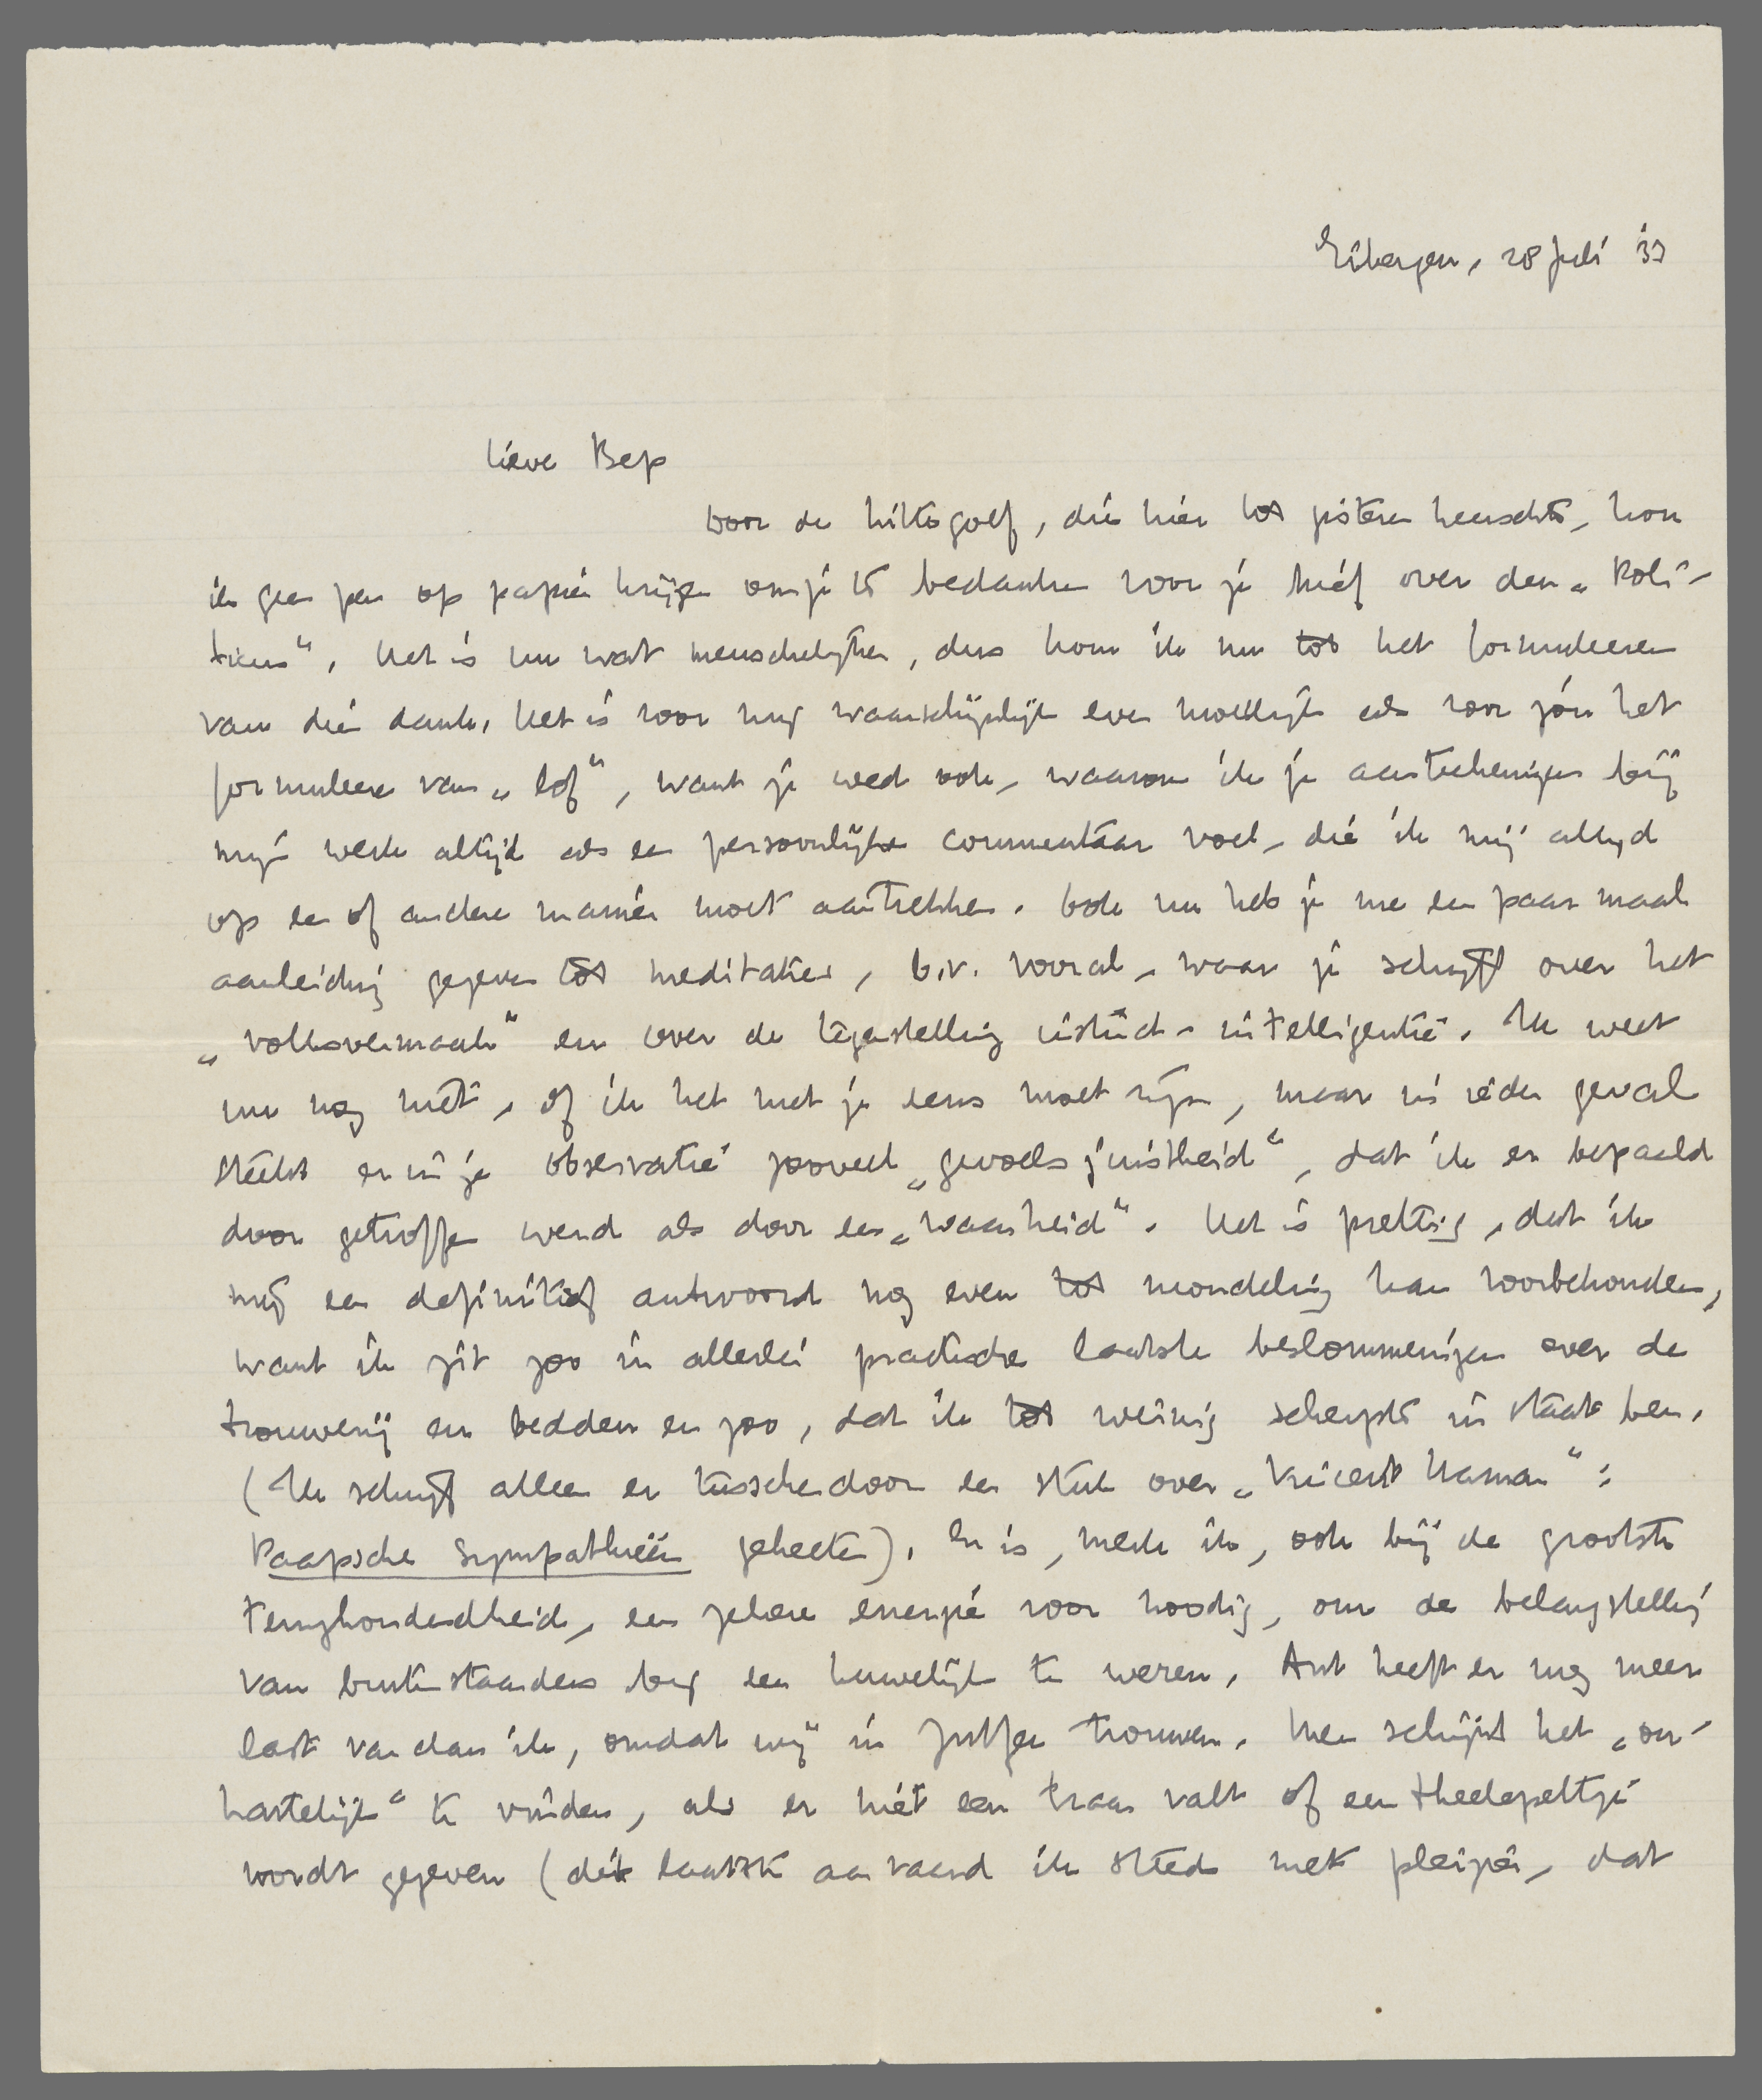 Eibergen, 28 Juli '33
Lieve Bep
Door de hittegolf, die hier tot gisteren heerschte, kon
ik geen pen op papier krijgen om je te bedanken voor je brief over den „Poli-
ticus". Het is nu wat menschelijker, dus kom ik nu tot het formuleeren
van die dank. Het is voor mij waarschijnlijk even moeilijk als voor jóu het
formuleeren van „lof", want je weet ook, waarom ik je aanteekeningen bij
mijn werk altijd als een persoonlijke commentaar voel, die ik mij altijd
op een of andere manier moet aantrekken. Ook nu heb je me een paar maal
aanleiding gegeven tot meditaties, b.v. vooral, waar je schrijft over het
„volksvermaak" en over de tegenstelling instinct-intelligentie. Ik weet
nu nog niet, of ik het met je eens moet zijn, maar in ieder geval
steekt er in je observatie zooveel „gevoelsjuistheid", dat ik er bepaald
door getroffen werd als door een „waarheid". Het is prettig, dat ik
mij een definitief antwoord nog even tot mondeling kan voorbehouden,
want ik zit zoo in allerlei practische laatste beslommeringen over de
trouwerij en bedden en zoo, dat ik tot weinig scherpte in staat ben.
(Ik schrijf alleen er tusschendoor een stuk over „Vincent Haman":
Paapsche Sympathieën geheeten). Er is, merk ik, ook bij de grootste
terughoudendheid, een zekere energie voor noodig, om de belangstelling
van buitenstaanders bij een huwelijk te weren. Ant heeft er nog meer
last van dan ik, omdat wij in Zutfen trouwen. Men schijnt het „on-
hartelijk" te vinden, als er niet een traan valt of een theelepeltje
wordt gegeven (dit laatste aanvaard ik steeds met pleizier, dat